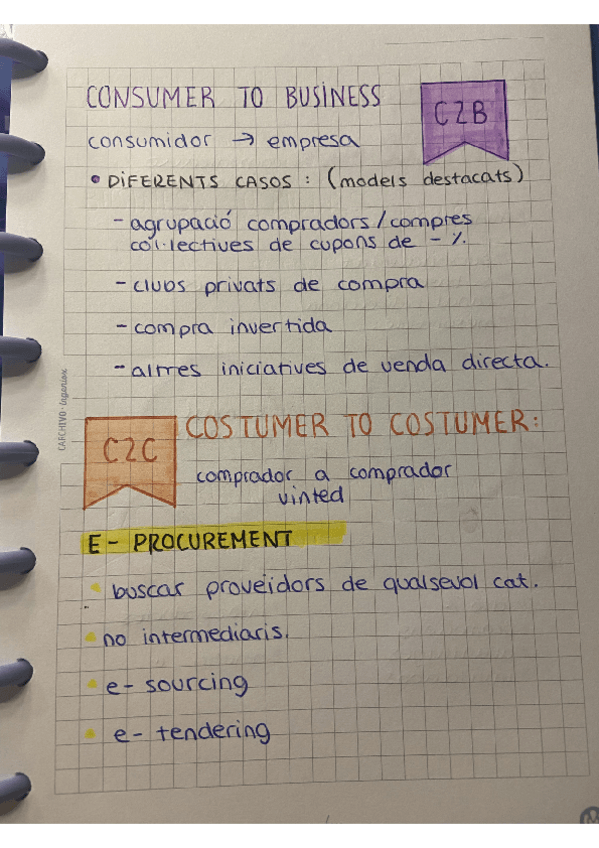 CONSUMER TO BUSINESS
C2B
consumidor → empresa
• DIFERENTS CASOS : (models destacats)
- agrupació compradors/compres
col·lectives de cupons de - %.
- clubs privats de compra
- compra invertida
- altres iniciatives de venda directa.
C2C
COSTUMER TO COSTUMER:
comprador a comprador
vinted
E - PROCUREMENT
• buscar proveïdors de qualsevol cat.
• no intermediaris.
• e - sourcing
• e - tendering
CARCHIVO